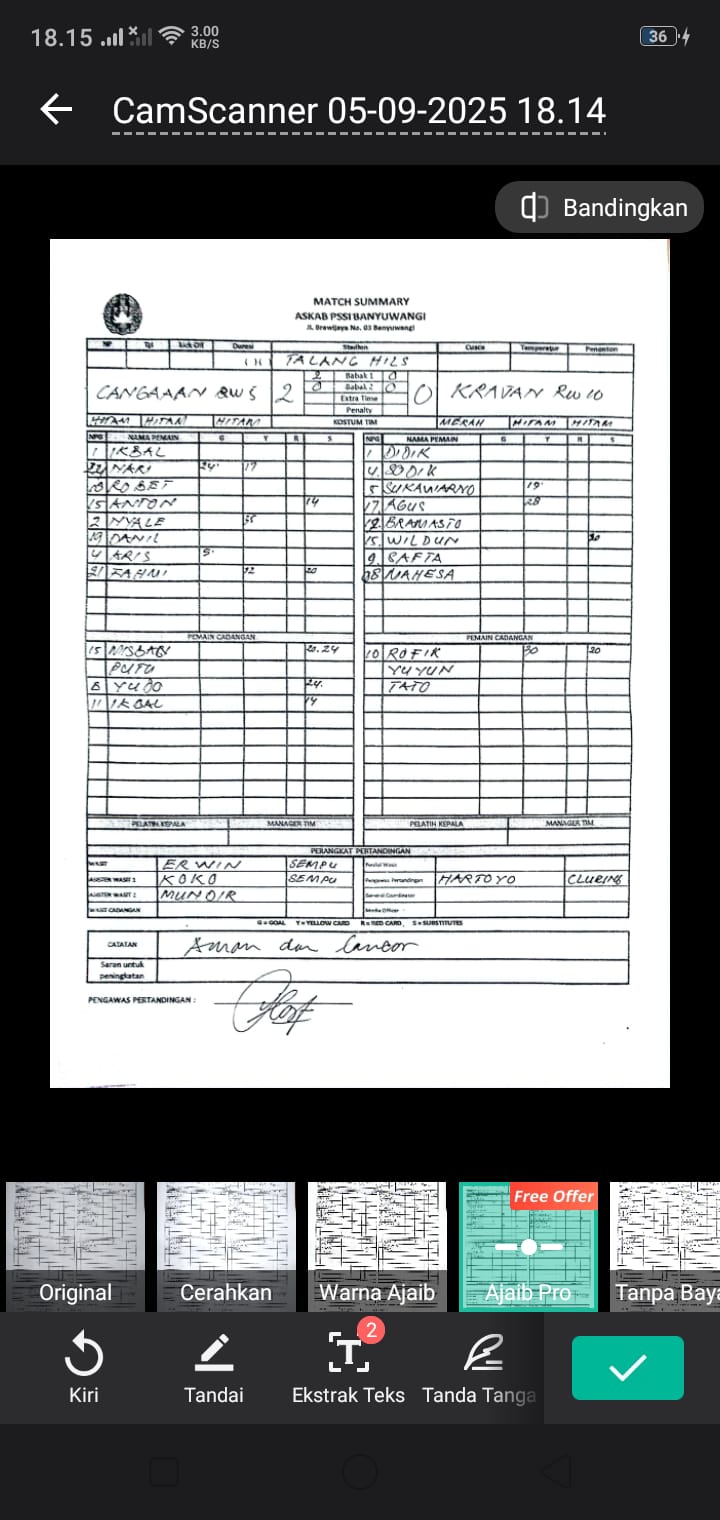 18.15 3.00 KB/S 36
CamScanner 05-09-2025 18.14
Bandingkan
MATCH SUMMARY
ASKAB PSSI BANYUWANGI
Jl. Brawijaya No. 03 Banyuwangi
NP Tgl Kick Off Durasi Stadion Cuaca Temperatur Penonton
TALANG HILS
CANGAAAN RW 5 2 2 Babak 1 0 0 KRAVAN RW 10
0 Babak 2 0
Extra Time
Penalty
HITAM HITAM HITAM KOSTUM TIM MERAH HITAM HITAM
NPG NAMA PEMAIN G Y R S NPG NAMA PEMAIN G Y R S
1 IKBAL 1 DIDIK
22 NARI 24' 17 4 SODIK
10 ROBET 5 SUKAWARNO 19'
15 ANTON 14 17 AGUS 28
2 NYALE 35 12 BRAMASTO
19 DANIL 15 WILDUN 20
4 ARIS 5' 9 RAFTA
21 FAHMI 32 20 08 MAHESA
PEMAIN CADANGAN PEMAIN CADANGAN
15 20.24 10 ROFIK 30 20
PUTU YUYUN
8 YUDO 24. TATO
11 IKBAL 14
PELATIH KEPALA MANAGER TIM PELATIH KEPALA MANAGER TIM
PERANGKAT PERTANDINGAN
WASIT ERWIN SEMPU Penilai Wasit
ASISTEN WASIT 1 KOKO SEMPU Pengawas Pertandingan HARTOYO CLURING
ASISTEN WASIT 2 MUNDIR General Coordinator
WASIT CADANGAN Media Officer
G = GOAL Y = YELLOW CARD R = RED CARD, S = SUBSTITUTES
CATATAN Aman dan lancar
Saran untuk
peningkatan
PENGAWAS PERTANDINGAN :
Free Offer
Original Cerahkan Warna Ajaib Ajaib Pro Tanpa Baya
2
Kiri Tandai Ekstrak Teks Tanda Tanga